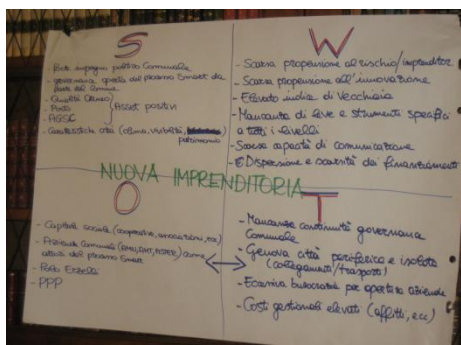 S
- Forte impegno politico Comunale
- governance aperta del processo Smart da
parte del Comune
- Qualità Ateneo
- Porto
- AGSC
} Asset positivi
- Caratteristiche città (clima, vivibilità,
patrimonio)
W
- Scarsa propensione al rischio/imprenditor
- Scarsa propensione all'innovazione
- Elevato indice di Vecchiaia
- Mancanza di leve e strumenti specifici
a tutti i livelli
- Scarsa capacità di comunicazione
- Dispersione e scarsità dei finanziamenti
NUOVA IMPRENDITORIA
O
- Capitale sociale (cooperative, associazioni, ecc)
- Aziende Comunali (AMIU, AMT, ASTER) come
attori del processo Smart
- Polo Erzelli
- PPP
T
- Mancanza continuità governance
Comunale
- Genova città periferica e isolata
(collegamenti/trasporti)
- Eccessiva burocrazia per apertura aziende
- Costi gestionali elevati (affitti, ecc)